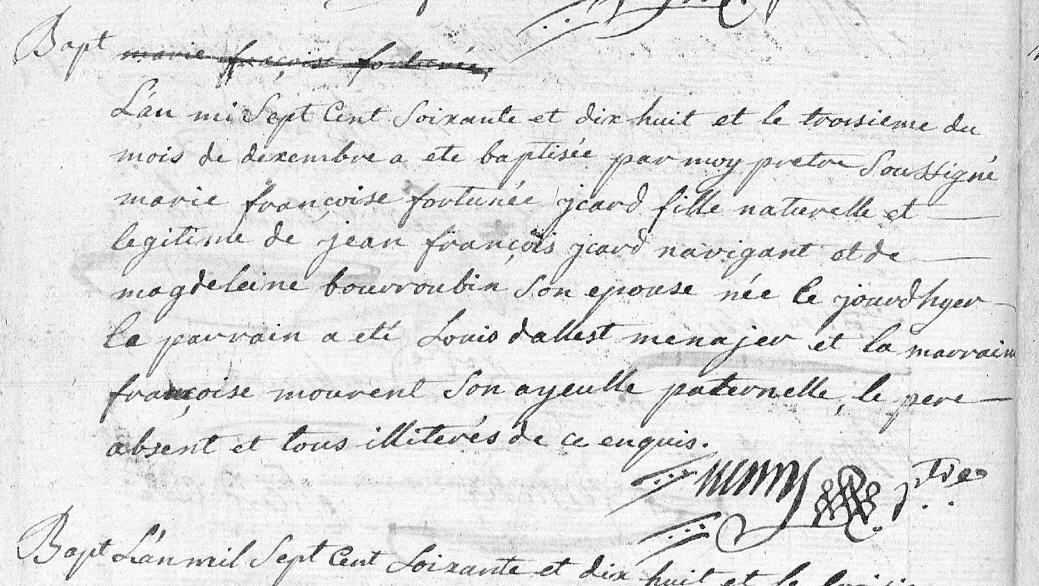 Bapt marie françoise fortunée,
L'an mil Sept Cent Soixante et dix huit et le troisieme du
mois de dexembre a ete baptisée par moy pretre Soussigné
marie françoise fortunée jcard fille naturelle et
legitime de jean françois jcard navigant et de
magdeleine bourroubin Son epouse née le jourdhyer
le parrain a eté Louis dallest menajer et la marraine
françoise mourent Son ayeulle paternelle, le pere
absent et tous illiterés de ce enquis.
ptre
Bapt L'an mil Sept Cent Soixante et dix huit et le